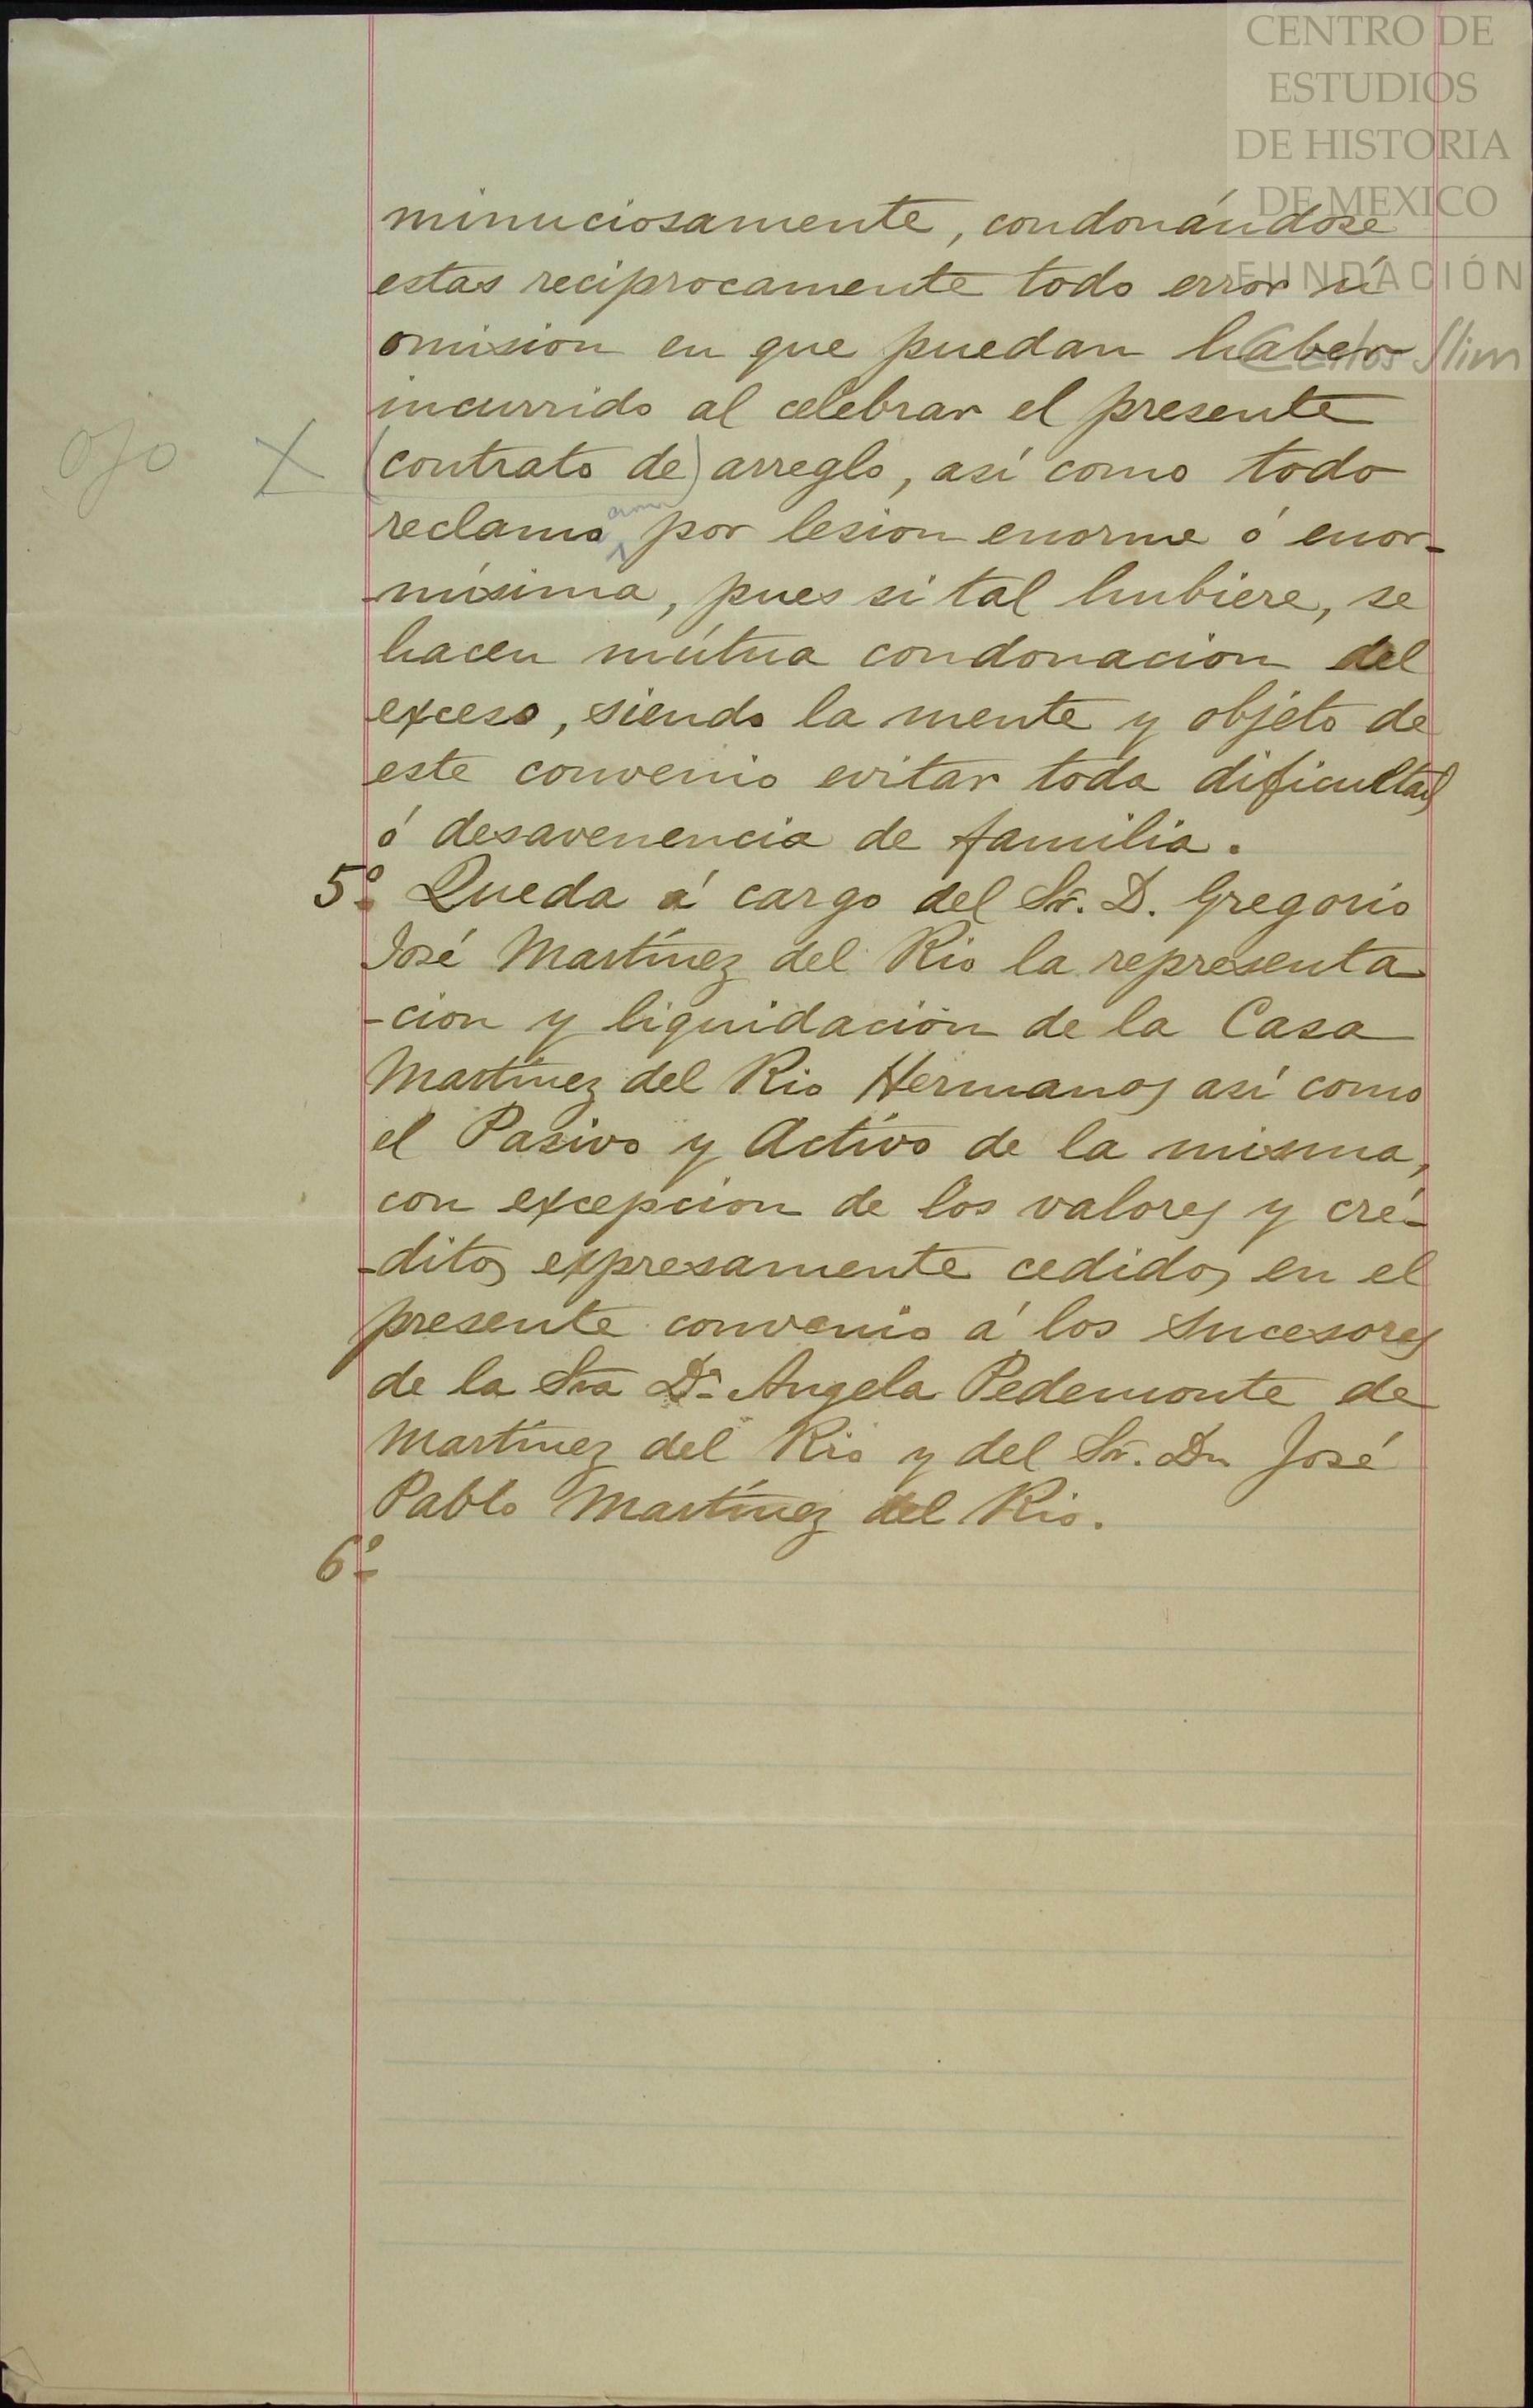 CENTRO DE
ESTUDIOS
DE HISTORIA
DE MEXICO
FUNDACIÓN
Carlos Slim
minuciosamente, condonándose
estas reciprocamente todo error ú
omision en que puedan haber
incurrido al celebrar el presente
ojo X (contrato de) arreglo, así como todo
reclamo por lesion enorme ó enor-
-mísima, pues si tal hubiere, se
hacen mútua condonacion del
exceso, siendo la mente y objeto de
este convenio evitar toda dificultad
ó desavenencia de familia.
5º Queda á cargo del Sr. D. Gregorio
José Martínez del Rio la representa
-cion y liquidación de la Casa
Martínez del Rio Hermanos así como
el Pasivo y Activo de la misma,
con excepcion de los valores y cré-
-ditos expresamente cedidos en el
presente convenio á los Sucesores
de la Sra Dª Angela Pedemonte de
Martínez del Rio y del Sr. Dn José
Pablo Martínez del Rio.
6º